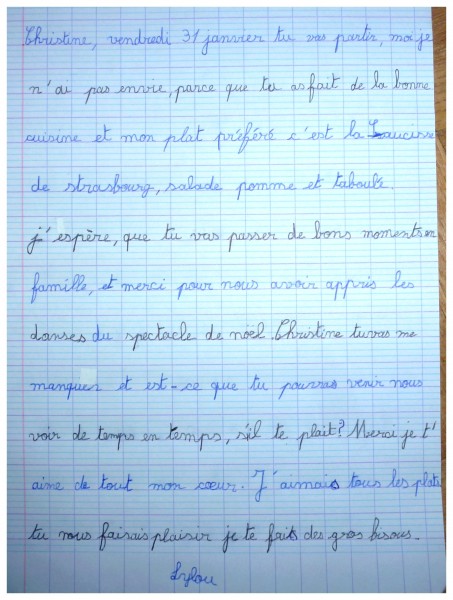 Christine, vendredi 31 janvier tu vas partir, moi je
n'ai pas envie, parce que tu as fait de la bonne
cuisine et mon plat préféré c'est la saucisse
de strasbourg, salade pomme et taboulé.
j'espère, que tu vas passer de bons moments en
famille, et merci pour nous avoir appris les
danses du spectacle de noël. Christine tu vas me
manquer et est-ce que tu pourras venir nous
voir de temps en temps, s'il te plait? Merci je t'
aime de tout mon cœur. J'aimais tous les plats
tu nous faisais plaisir je te fais des gros bisous.
Lylou